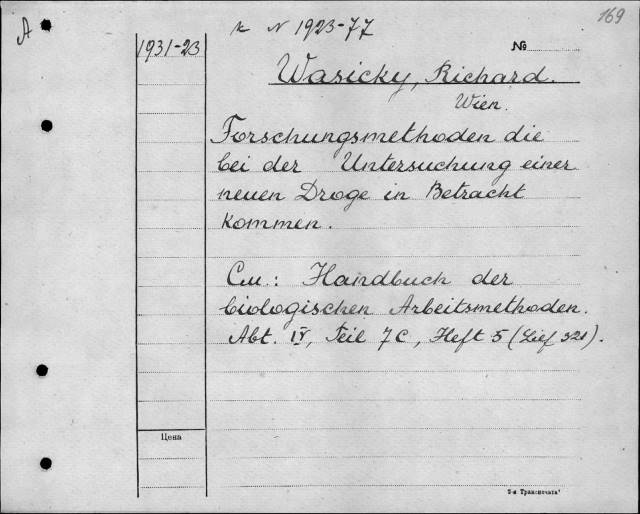 A
k N 1923-77
169
1931-23
№
Wasicky, Richard.
Wien.
Forschungsmethoden die
bei der Untersuchung einer
neuen Droge in Betracht
kommen.
См.: Handbuch der
biologischen Arbeitsmethoden.
Abt. IV, Teil 7C, Heft 5 (Lief 321).
Цена
2-я Транспечать